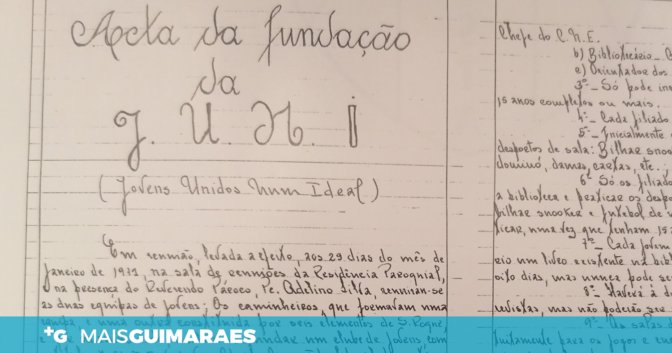 Acta da fundação
da
J. U. N. I
(Jovens Unidos Num Ideal)
Em reunião, levada a efeito, aos 29 dias do mês de
Janeiro de 1971, na sala de reuniões da Residência Paroquial,
na presença do Reverendo Pároco, Pe. Adelino Silva, reuniram-se
as duas equipas de jovens: Os caminheiros, que formavam uma
equipa e uma outra constituída por seis elementos de S. Roque
um clube de Jovens com
Chefe do C.N.E.
b) Bibliotecário
c) Orientador dos
3º - Só pode
15 anos completos ou mais.
4º - Cada filiado
5º - Inicialmente
desportos de sala: Bilhar snoo
dominó, damas, cartas, etc.
6º Só os filiado
a biblioteca e praticar os despo
bilhar snooker e futebol de
ficar, uma vez que tenham 15
7º - Cada jovem
um livro existente na bib
oito dias, mas nunca pode
8º - Haverá à d
revistas, mas não poderão ser
9º - As salas
para os jogos e
+G MAISGUIMARAES